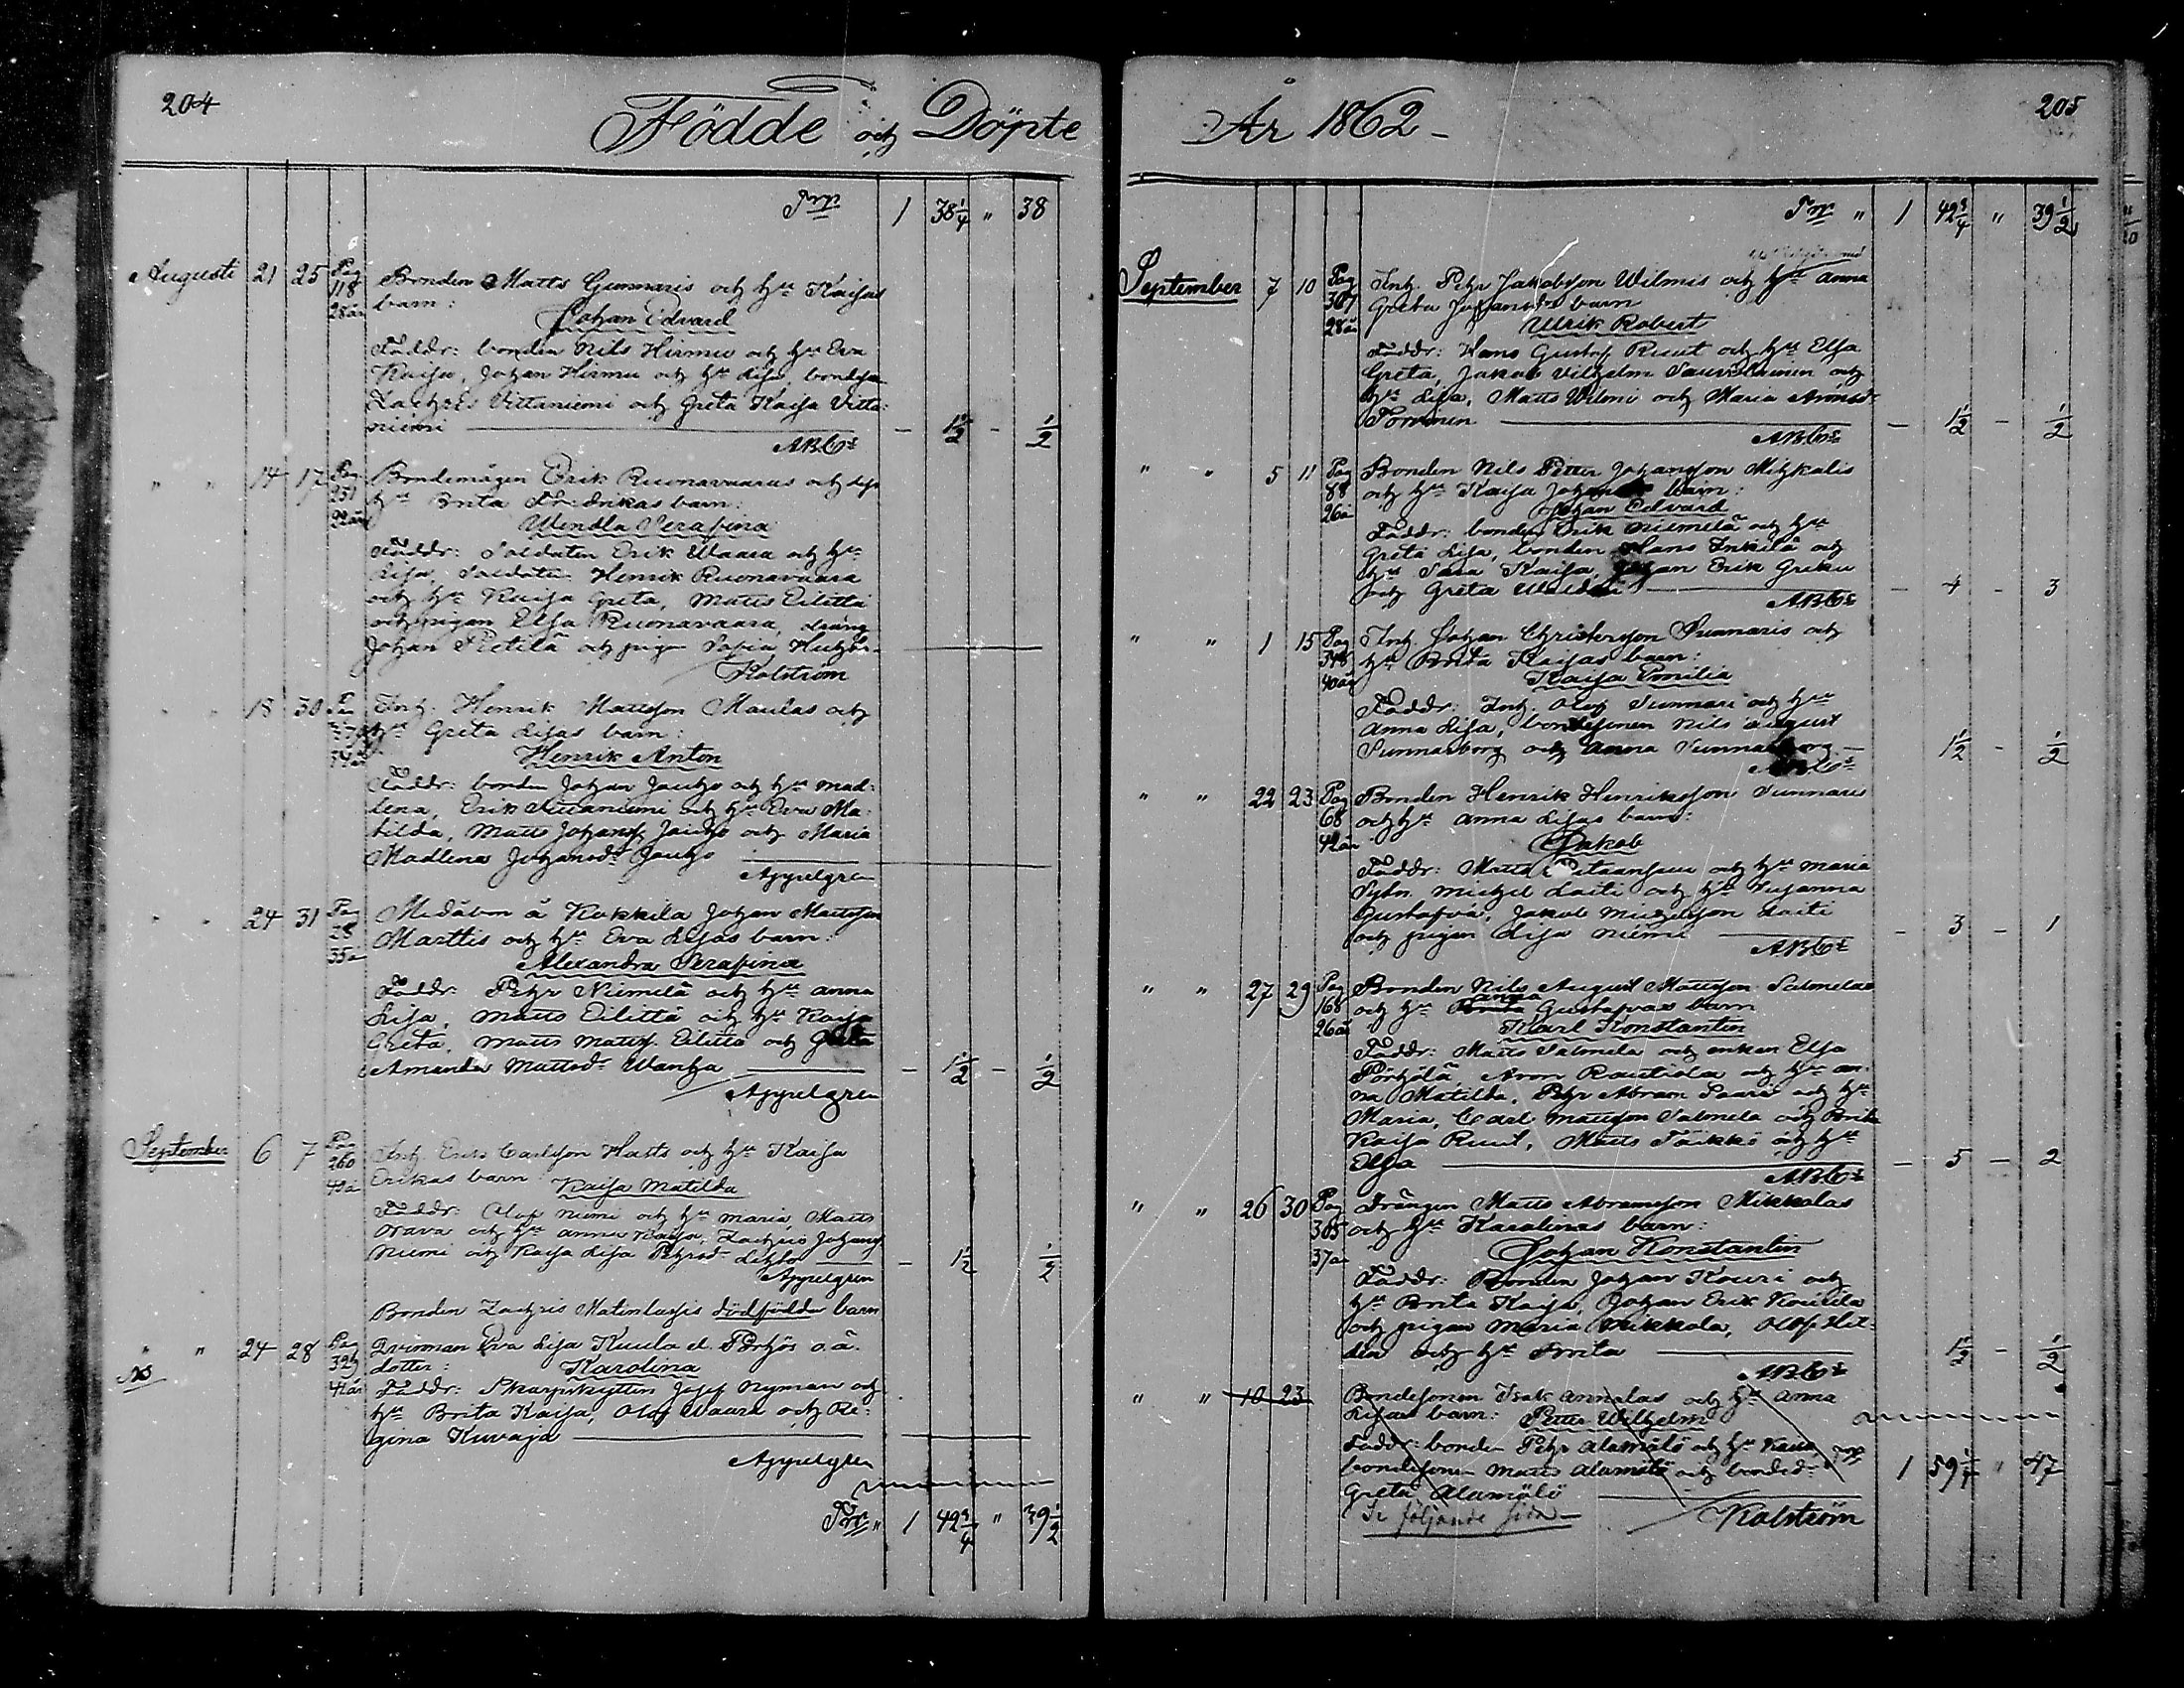 204
Födde och Döpte
Trp 1 38 1/4 " 38
Augusti 21 25 Pag 118 28 år Bonden Matts Gunnaris och h:u Kaisas
barn:
Johan Edvard
Faddr: bonden Nils Hirmu och h:u Eva
Kaisa, Johan Hirmu och h:u Lisa, bondeson
Zachris Vittaniemi och Greta Kaisa Vitta-
niemi — 1 1/2 — 1/2
" " 14 17 Pag 251 22 år Bondemågen Erik Ruonavaaras och
h:u Brita Fredrikas barn:
Wendla Serafina
Faddr: Soldaten Erik Waara och h:u
Lisa, Soldaten Henrik Ruonavaara
och h:u Kaisa Greta, Matts Eilittä
och pigan Elsa Ruonavaara, dräng
Johan Pietilä och pigan Sofia
Kalström
" " 18 30 Inh. Henrik Mattsson Maulas och
h:u Greta Lisas barn:
Henrik Anton
Faddr: bonden Johan Jauho och h:u Mad-
lena, Erik och h:u Eva Ma-
tilda, Matts Johanss. Jauho och Maria
Madlena Johansd:r Jauho
Appelgren
" " 24 31 Pag 28 35 å Medåbon å Kokkila Johan Mattsson
Marttis och h:u Eva Lisas barn:
Alexandra Serafina
Faddr: Pehr Niemelä och h:u Anna
Lisa, Matts Eilittä och h:u Kaisa
Greta, Matts Matts. Eilittä och Greta
Amanda Mattsd:r Wanha — 1 1/2 — 1/2
Appelgren
September 6 7 Pag 260 Inh. Eriks Carlsson Hasts och h:u Kaisa
Erikas barn Kaisa Matilda
Faddr: Olof Niemi och h:u Maria, Matts
Orava och h:u Anna Kaisa, Zachris Johans
Niemi och Kaisa Lisa Pehrsd:r — 1 1/2 1/2
Appelgren
Bonden Zachris Matinlassis dödfödda barn
" " 24 28 Pag 329 41 år Qvinnan Eva Lisa Kuula d. Pörhös o.ä.
dotter: Karolina
Faddr: Skarpskytten Josef Nyman och
h:u Brita Kaisa, Olof Waara och Re-
gina Kuvaja
Appelgren
Trp " 1 42 3/4 " 39 1/2
År 1862
205
Trp " 1 42 3/4 " 39 1/2
September 7 10 Pag 307 28 år Inh. Pehr Jakobsson Wilmis och h:u Anna
Greta Johansdrs barn
Ulrik Robert
Faddr: Hans Gustaf Ruut och h:u Elsa
Greta, Jakob Vilhelm och
h:u Lisa, Matts Wilmi och Maria
— 1 1/2 — 1/2
" " 5 11 Pag 88 26 å Bonden Nils Petter Johansson Mihkalis
och h:u Kaisa barn:
Johan Edvard
Faddr: bonden Erik Niemelä och h:u
Greta Lisa, bonden Hans Inkilä och
h:u Sara Kaisa, Johan Erik Greku
och Greta — 4 — 3
" " 1 15 Pag 40 år Inh. Johan Christersson Sunnaris och
h:u Brita Kaisas barn:
Kaisa Emilia
Faddr: Inh. Olof Sunnari och h:u
Anna Lisa, bondesonen Nils August
Sunnarborg och Anna Sunnarborg — 1 1/2 — 1/2
" " 22 23 Pag 68 42 år Bonden Henrik Henriksson Sunnaris
och h:u Anna Lisas barn:
Jakob
Faddr: Matts och h:u Maria
Michel Laiti och h:u Susanna
Gustafva, Jakob Michelsson Laiti
och pigan Lisa Niemi — 3 — 1
" " 27 29 Pag 168 26 år Bonden Nils August Mattsson Salmelas
och h:u Anna Gustafvas barn
Karl Konstantin
Faddr: Matts Salmela och enkan Elsa
Pörhölä, Aron Rautiola och h:u An-
na Matilda, Pehr Abram Saari och h:u
Maria, Carl Mattsson Salmela och Brita
Kaisa Ruut, Matts Taikko och h:u
Elsa — 5 — 2
" " 26 30 Pag 305 37 å Drängen Matts Abramsson Mikkolas
och h:u Karolinas barn:
Johan Konstantin
Faddr: Bonden Johan Kouri och
h:u Brita Kaisa, Johan Erik Kourila
och pigan Maria Mikkola, Olof
och h:u Brita — 1 1/2 — 1/2
" " 10 23 Bondesonen Isak Annalas och h:u Anna
Lisas barn: Petter Wilhelm
Faddr: bonden Pehr Alamölö och h:u Kaisa
bondesonen Matts Alamölö och bonded:r Trp 1 59 1/4 " 47
Greta Alamölö
Se följande sida — Kalström